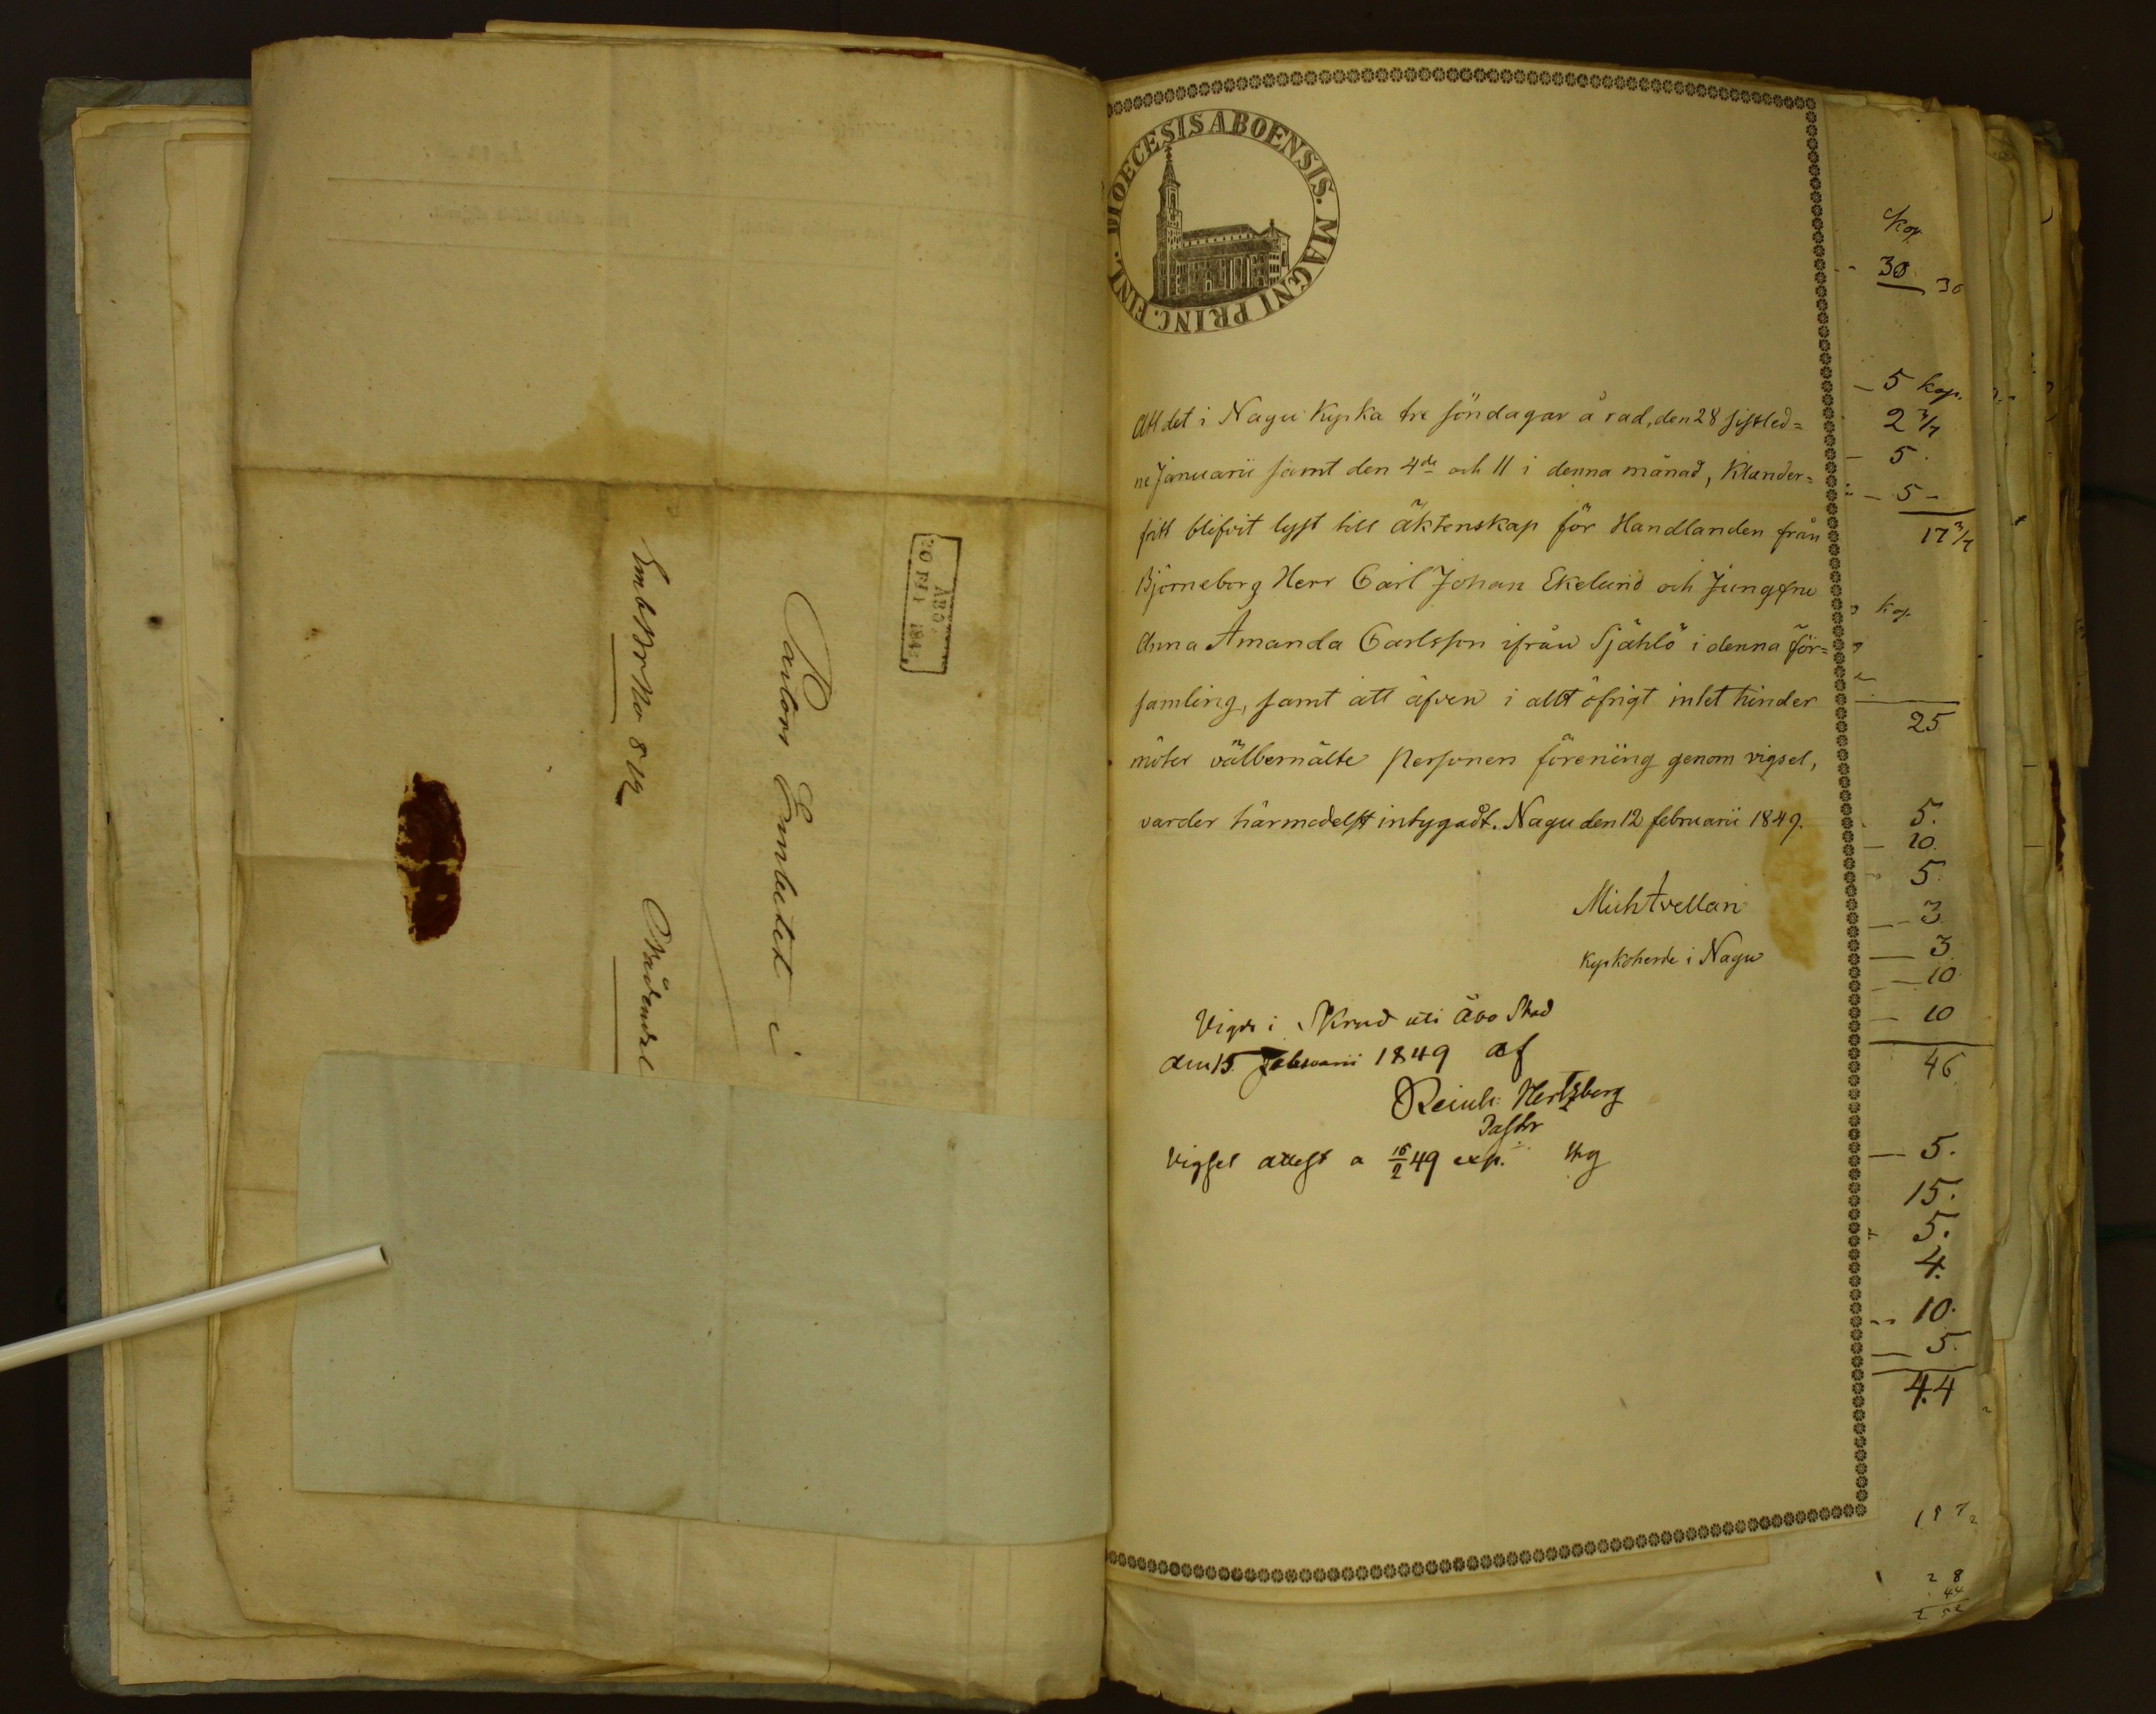 Pastors Embetet i
Nådendal
ÅBO
DIOECESIS ABOENSIS. MAGNI PRINC. FINL.
Att det i Nagu Kyrka tre söndagar å rad, den 28 sistled=
ne Januarii samt den 4de och 11 i denna månad, Klander=
fritt blifvit lyst till äktenskap för Handlanden från
Björneborg Herr Carl Johan Ekelund och Jungfru
Anna Amanda Carlsson ifrån Själlö i denna för=
samling, samt att äfven i allt öfrigt intet hinder
möter välbemälte personers förening genom vigsel,
varder härmedelst intygadt. Nagu den 12 februarii 1849.
Mich Avellan
Kyrkoherde i Nagu
Vigde i Åbo Stad
den 15 februarii 1849 af
Reinh: Hertzberg
Pastor
Vigsel attest a 16/2 49 exp. Hg
Kop
30 30
5 kop.
2 3/7
5.
5
17 3/7
Kop.
25
5.
10.
5.
3
3
10
10
46
5.
15.
5.
4.
10.
5.
44